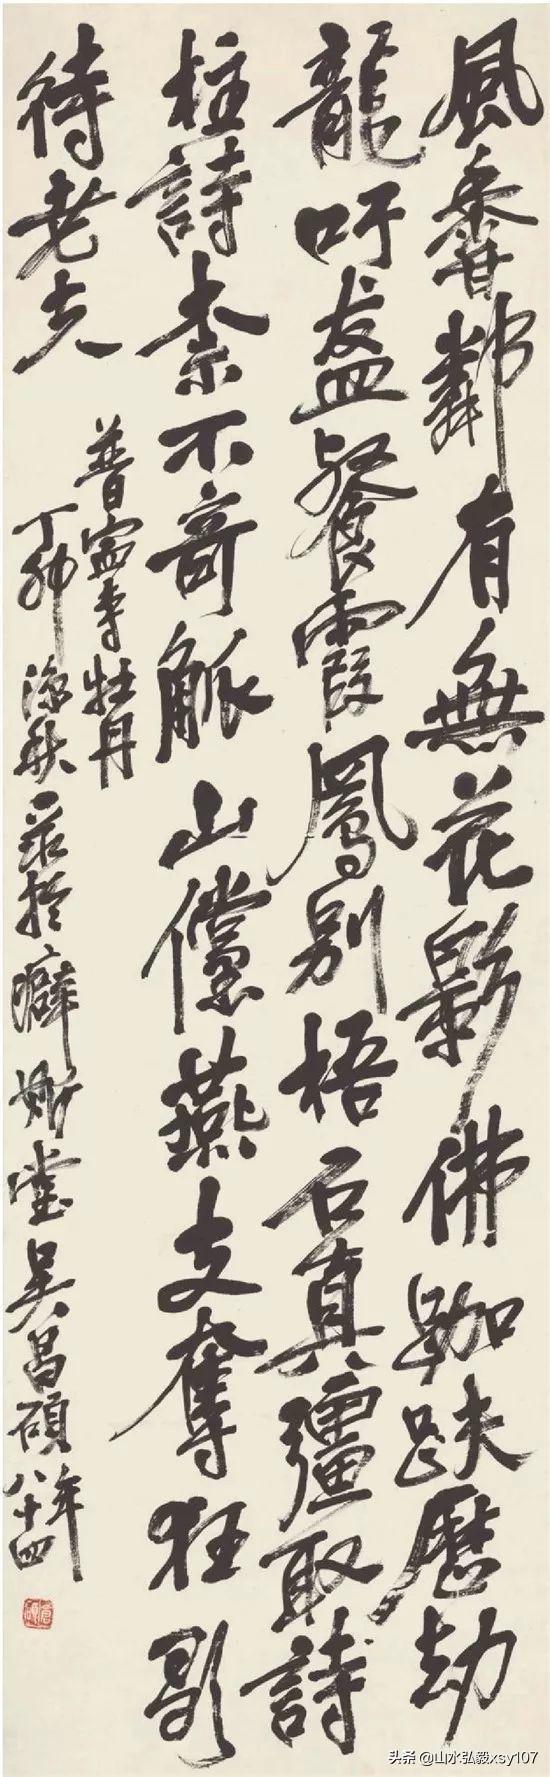 風香鄰有無花影佛跏趺歷劫
龍吁盋餐霞鳳別梧石真彊取詩
柱詩柰不奇觚山儻燕支奪狂歌
待老夫
普寧寺牡丹
丁卯涼秋录於癖斯堂吳昌碩年
八十四
头条 @山水弘毅xsy107